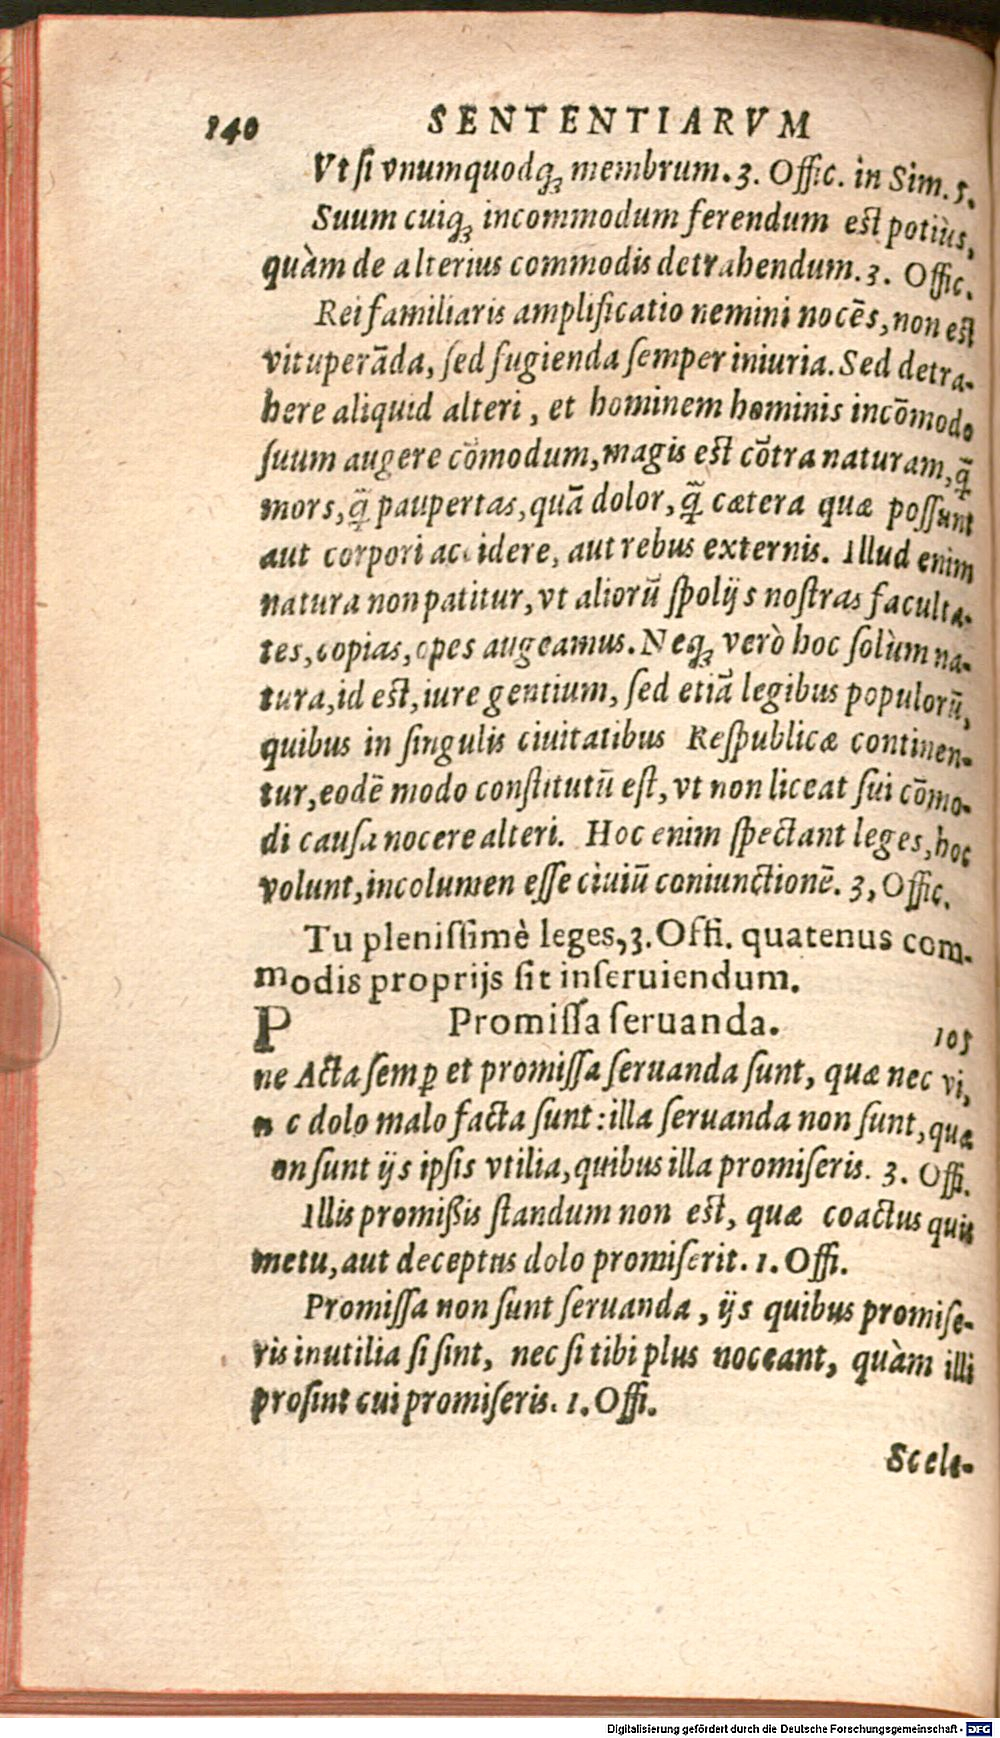 140 SENTENTIARVM
Vt si vnumquodq; membrum. 3. Offic. in Sim. 5.
Suum cuiq; incommodum ferendum est potiùs,
quàm de alterius commodis detrahendum. 3. Offic.
Rei familiaris amplificatio nemini nocẽs, non est
vituperãda, sed fugienda semper iniuria. Sed detra-
here aliquid alteri, et hominem hominis incõmodo
suum augere cõmodum, magis est cõtra naturam, q̃
mors, q̃ paupertas, quã dolor, q̃ cætera quæ possunt
aut corpori accidere, aut rebus externis. Illud enim
natura non patitur, vt aliorũ spolijs nostras faculta-
tes, copias, opes augeamus. Neq; verò hoc solùm na-
tura, id est, iure gentium, sed etiã legibus populorũ,
quibus in singulis ciuitatibus Respublicæ continen-
tur, eodẽ modo constitutũ est, vt non liceat sui cõmo-
di causa nocere alteri. Hoc enim spectant leges, hoc
volunt, incolumen esse ciuiũ coniunctionẽ. 3, Offic.
Tu plenissimè leges, 3. Offi. quatenus com-
modis proprijs sit inseruiendum.
P Promissa seruanda. 105
ne Acta semꝑ et promissa seruanda sunt, quæ nec vi,
n c dolo malo facta sunt: illa seruanda non sunt, quæ
on sunt ijs ipsis vtilia, quibus illa promiseris. 3. Offi.
Illis promissis standum non est, quæ coactus quis
metu, aut deceptus dolo promiserit. 1. Offi.
Promissa non sunt seruanda, ijs quibus promise-
ris inutilia si sint, nec si tibi plus noceant, quàm illi
prosint cui promiseris. 1. Offi.
Scele-
Digitalisierung gefördert durch die Deutsche Forschungsgemeinschaft - DFG